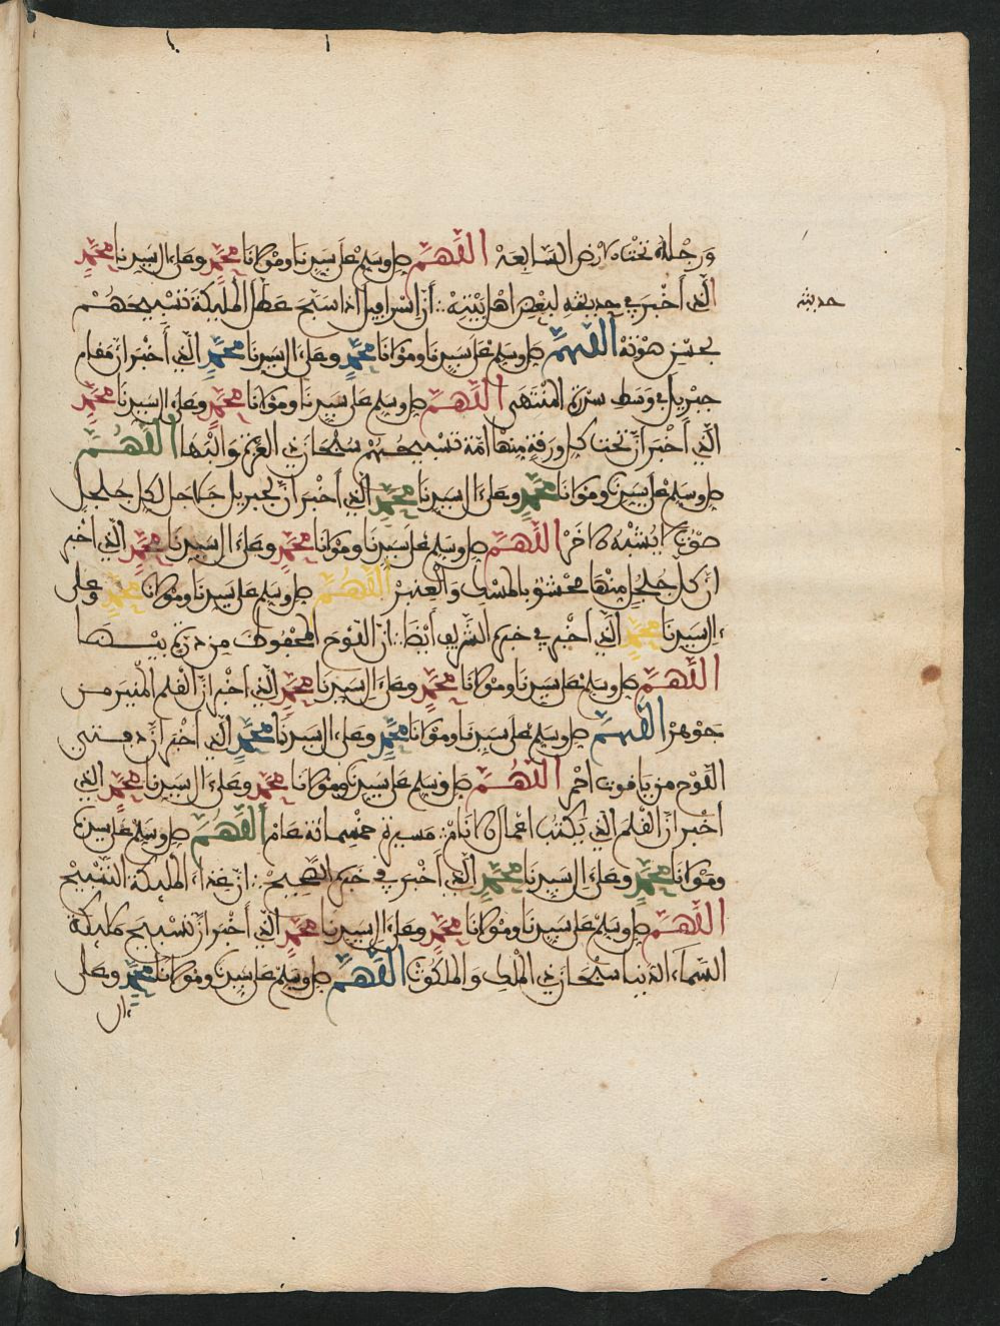 وَرِجْلَاهُ تحْتَ الارْضِ السَّابِعَهْ اللَّهُمَّ صل وسلم على سيدنا ومولانا محمد وعلى ءال سيدنا محمد
الذي أخْبَرَ في حديثه لبعض اهل بَيْتِهْ أنّ إسْرافيل اذا سَبَّحَ عَطَّلَ الملئكة تَسْبِيحَهُمْ
لحسن صَوْتِهْ اللَّهُمَّ صل وسلم على سيدنا ومولانا محمد وعلى ءال سيدنا محمد الذي أخْبَرَ انّ مَقام
جبْرِيلَ في وَسَطِ سِدْرَة المُنْتَهى اللَّهُمَّ صل وسلم على سيدنا ومولانا محمد وعلى ءال سيدنا محمد
الذي أخْبَرَ انّ تحت كل ورقة منها امّة تسبيحهم سبْحَان ذي العزة وَالْبَهَا اللَّهُمَّ
صل وسلم على سيدنا ومولانا محمد وعلى ءال سيدنا محمد الذي أخْبَرَ أنّ لجبريل جَلاجل لكل جلجل
صوْت لا يُشْبه الاخَرْ اللَّهُمَّ صل وسلم على سيدنا ومولانا محمد وعلى ءال سيدنا محمد الذي اخبر
انّ كل جُلْجُلٍ منْهَا محْشوّ بالمسْك وَالْعنبَرْ اللَّهُمَّ صل وسلم على سيدنا ومولانا محمد وعلى
ءال سيدنا محمد الذي أخْبر في خبره الشريف أيْضَا انّ اللوْحَ المحْفوظ من درة بيْضَا
اللَّهُمَّ صل وسلم على سيدنا ومولانا محمد وعلى ءال سيدنا محمد الذي أخبر انّ القلم المنير من
جَوْهرْ اللَّهُمَّ صل وسلم على سيدنا ومولانا محمد وعلى ءال سيدنا محمد الذي أخبر أنّ دفتي
اللوْح من ياقوت احمر اللَّهُمَّ صل وسلم على سيدنا ومولانا محمد وعلى ءال سيدنا محمد الذي
أخْبر انّ القلمَ الذي يَكْتبُ اعْمال الانَامْ مَسيرة خمْسمائة عَامْ اللَّهُمَّ صل وسلم على سيدنا
ومولانا محمد وعلى ءال سيدنا محمد الذي أخْبرَ في خبره الصَّحِيحْ انّ غذاء الملئكة التَّسْبِيحْ
اللَّهُمَّ صل وسلم على سيدنا ومولانا محمد وعلى ءال سيدنا محمد الذي أخْبَرَ انّ تسْبيحَ ملائكة
السَّماء الدّنيا سبْحَانَ ذي المُلك وَالملكوتْ اللَّهُمَّ صل وسلم على سيدنا ومولانا محمد وعلى
ءال
حديثه